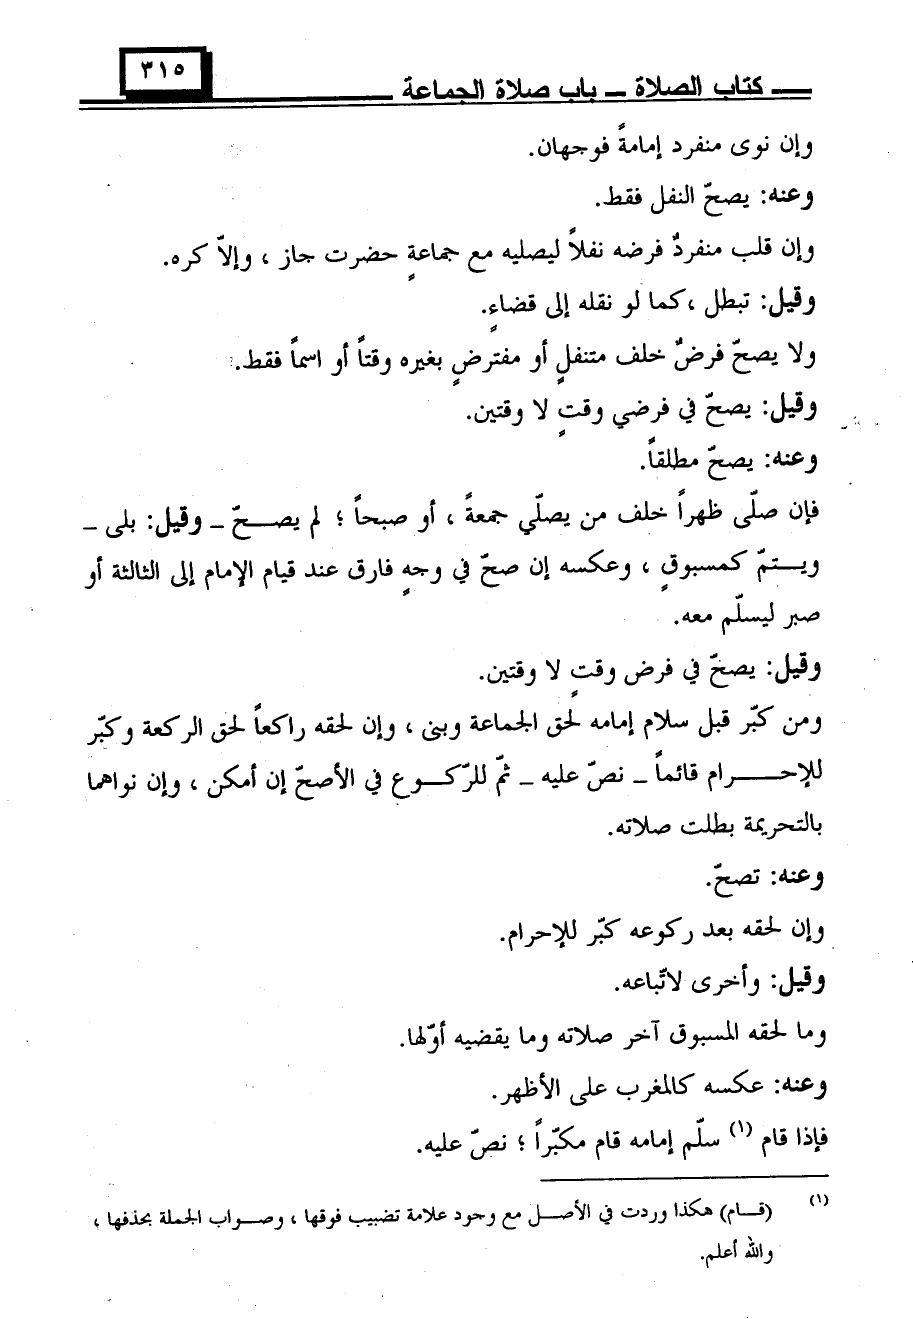 كتاب الصلاة ــ باب صلاة الجماعة ٣١٥
وإن نوى منفرد إمامةً فوجهان.
وعنه: يصحّ النفل فقط.
وإن قلب منفردٌ فرضه نفلاً ليصليه مع جماعةٍ حضرت جاز ، وإلاّ كره.
وقيل: تبطل ، كما لو نقله إلى قضاءٍ.
ولا يصحّ فرضٌ خلف متنفلٍ أو مفترضٍ بغيره وقتاً أو اسماً فقط.
وقيل: يصحّ في فرضي وقتٍ لا وقتين.
وعنه: يصحّ مطلقاً.
فإن صلّى ظهراً خلف من يصلّي جمعةً ، أو صبحاً ؛ لم يصـــحّ ــ وقيل: بلى ــ
ويـــتمّ كمسبوقٍ ، وعكسه إن صحّ في وجهٍ فارق عند قيام الإمام إلى الثالثة أو
صبر ليسلّم معه.
وقيل: يصحّ في فرض وقتٍ لا وقتين.
ومن كبّر قبل سلام إمامه لحق الجماعة وبنى ، وإن لحقه راكعاً لحق الركعة وكبّر
للإحـــــرام قائماً ــ نصّ عليه ــ ثمّ للرّكـــوع في الأصحّ إن أمكن ، وإن نواهما
بالتحريمة بطلت صلاته.
وعنه: تصحّ.
وإن لحقه بعد ركوعه كبّر للإحرام.
وقيل: وأخرى لاتّباعه.
وما لحقه المسبوق آخر صلاته وما يقضيه أوّلها.
وعنه: عكسه كالمغرب على الأظهر.
فإذا قام (١) سلّم إمامه قام مكبّراً ؛ نصّ عليه.
(١) (قـــام) هكذا وردت في الأصـــل مع وجود علامة تضبيب فوقها ، وصـــواب الجملة بحذفها ،
والله أعلم.